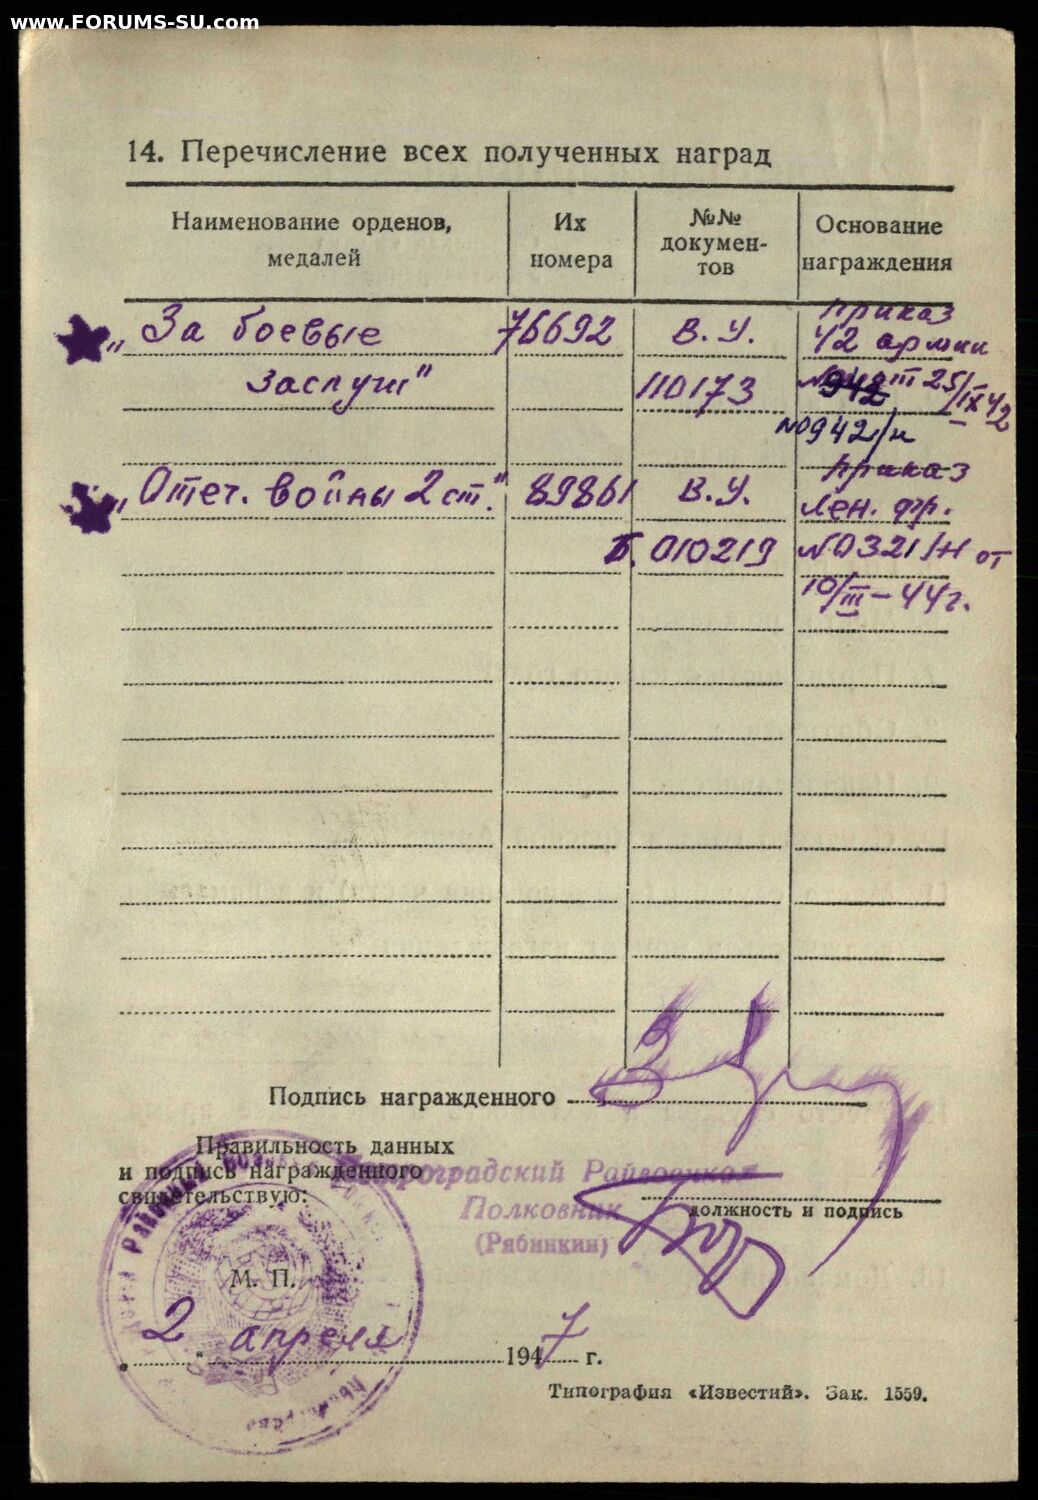 www.FORUMS-SU.com
14. Перечисление всех полученных наград
Наименование орденов, медалей
Их номера
№№ докумен-тов
Основание награждения
„За боевые 76692 В. У. приказ
42 армии
заслуги" 110173 942 25/IX 42
№0942/н
„Отеч. войны 2 ст." 89861 В. У. приказ
Лен. фр.
Б. 010219 №0321/н от
10/III – 44г.
Подпись награжденного
Правильность данных
и подпись награжденного
свидетельствую:
Райвоенком
Полковник
(Рябинкин)
должность и подпись
М. П.
„2" апреля 1947 г.
Типография «Известий». Зак. 1559.